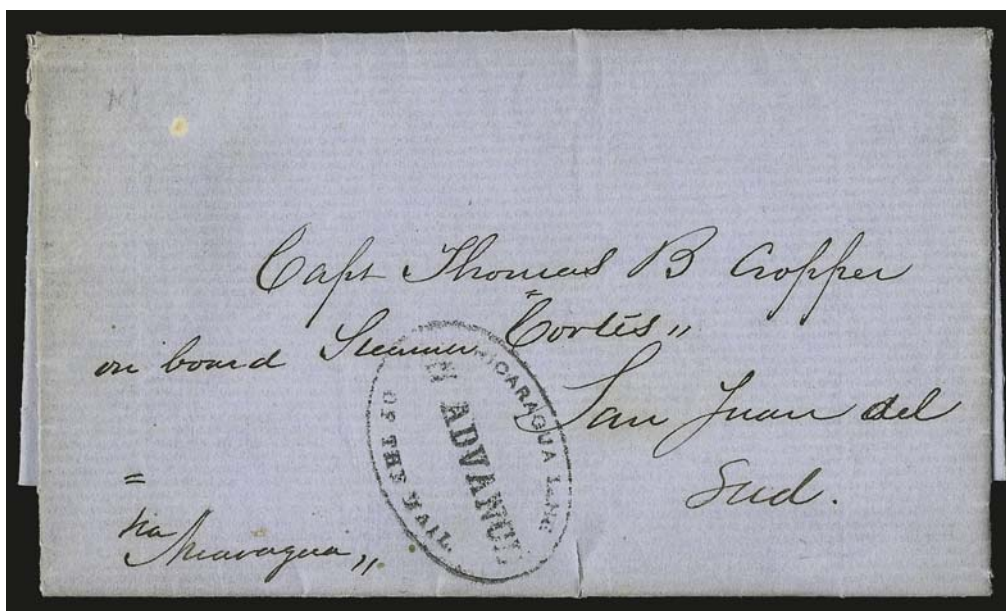 Capt Thomas B Cropper
on board Steamer "Cortés"
San Juan del
Sud.
via
Nicaragua
NICARAGUA LINE
IN ADVANCE
OF THE MAIL.